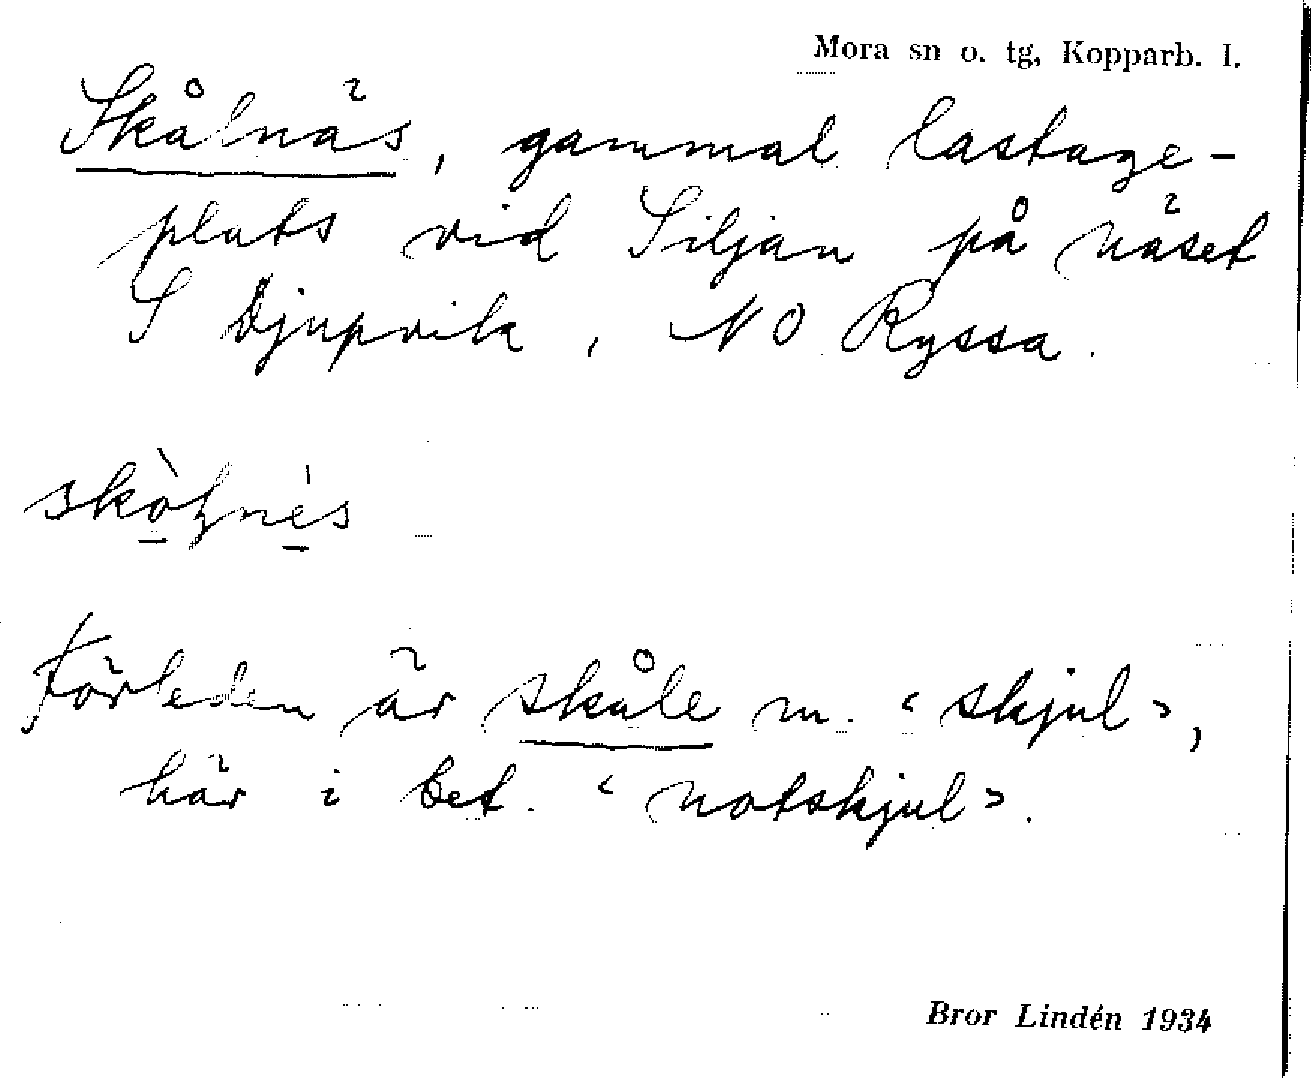 Mora sn o. tg, Kopparb. l.
Skålnäs, gammal lastage-
plats vid Siljan på näset
S Djupvik, NO Ryssa.
Förleden är skåle m. "skjul",
här i bet. "notskjul".
Bror Lindén 1934